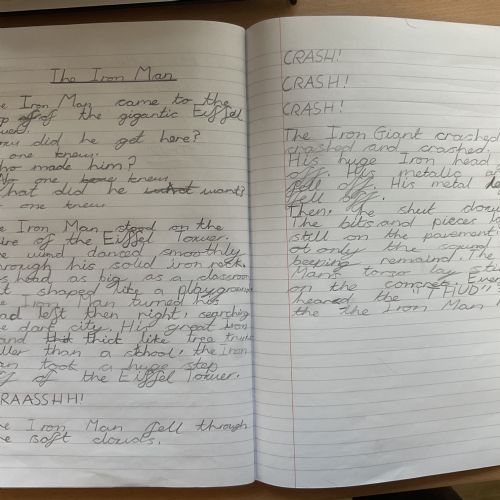 The Iron Man
Iron Man came to the
of the gigantic Eiffel
did he get here?
one knew.
made him?
No one knew.
What did he want?
one knew.
Iron Man stood on the
of the Eiffel Tower.
wind danced smoothly
through his solid iron
head as big as a classroom
shaped like a playground
Iron Man turned his
head left then right, searching
dark city. His great iron
and thick like tree trunk
taller than a school, the Iron
took a huge step
of the Eiffel Tower.
CRAASSHH!
Iron Man fell through
the soft clouds.
CRASH!
CRASH!
CRASH!
The Iron Giant crashed
crashed and crashed.
His huge Iron head
off. His metallic
fell off. His metal
fell off.
Then, the shut down
The bits and pieces
still on the pavement
only the sound
beeping remaind. The
Mans torso lay
on the concrete
heared the "THUD"
the the Iron Man